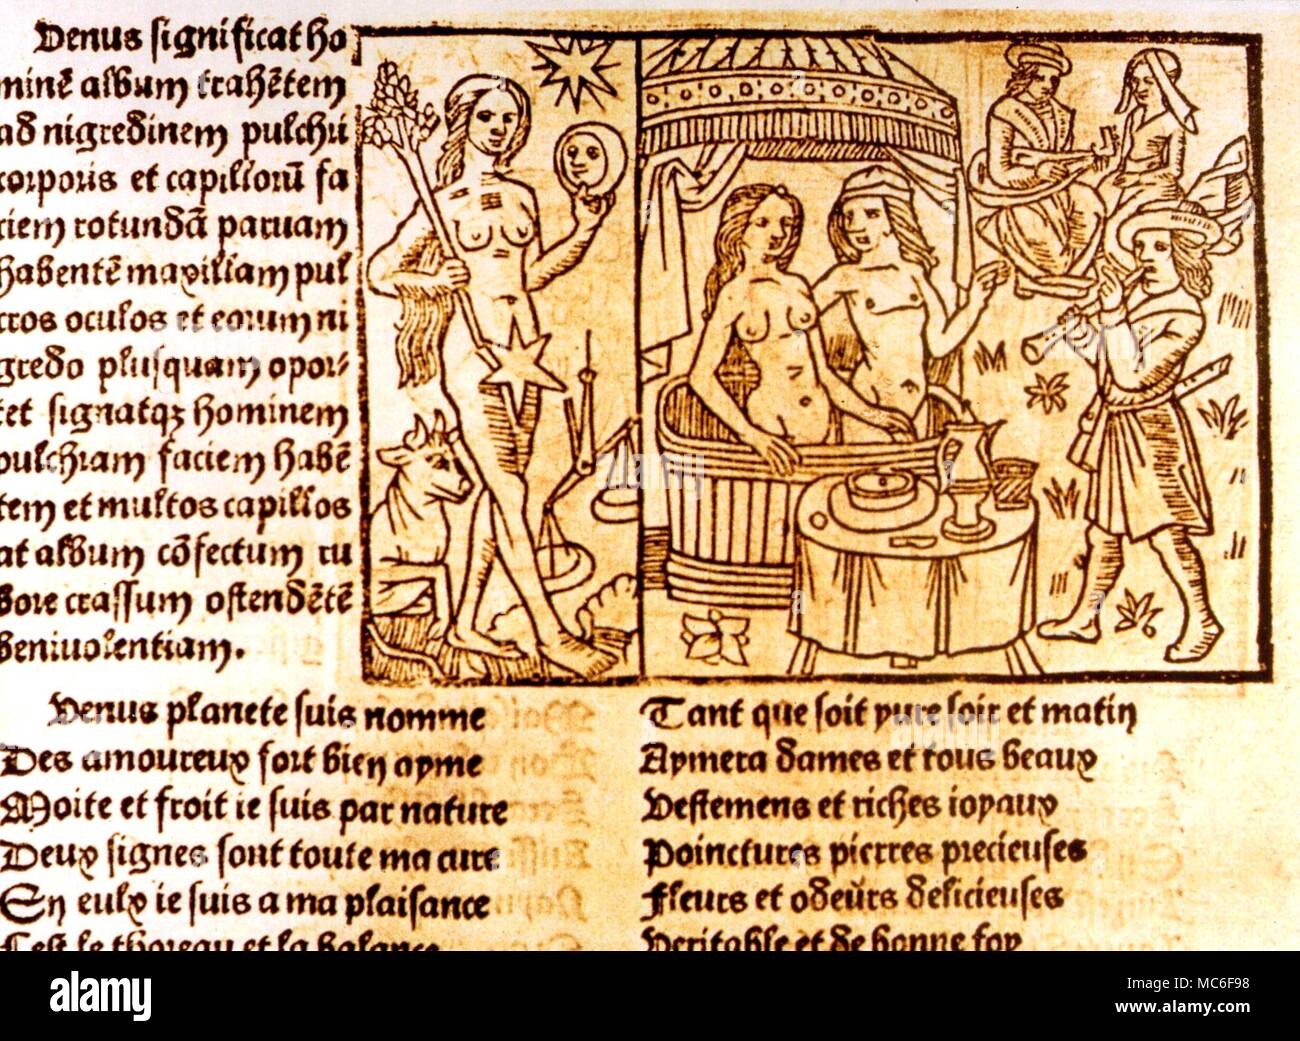 Venus significat ho
minē album trahētem
ad nigredinem pulchri
corporis et capillorū fa
ciem rotundā paruam
habentē maxillam pul
cros oculos et eorum ni
gredo plusquam opor-
tet signatqȝ hominem
pulchram faciem habē
tem et multos capillos
at album cōfectum ru
bore crassum ostendētē
beniuolentiam.
Venus planete suis nomme
Des amoureux fort bien ayme
Moite et froit ie suis par nature
Deux signes sont toute ma cure
En eulx ie suis a ma plaisance
Cest le thoreau et la balance
Tant que soit yure soir et matin
Aymera dames et tous beaux
Vestemens et riches ioyaux
Poinctures pierres precieuses
Fleurs et odeurs delicieuses
Veritable et de bonne foy
a alamy stock photo
MC6F98
www.alamy.com